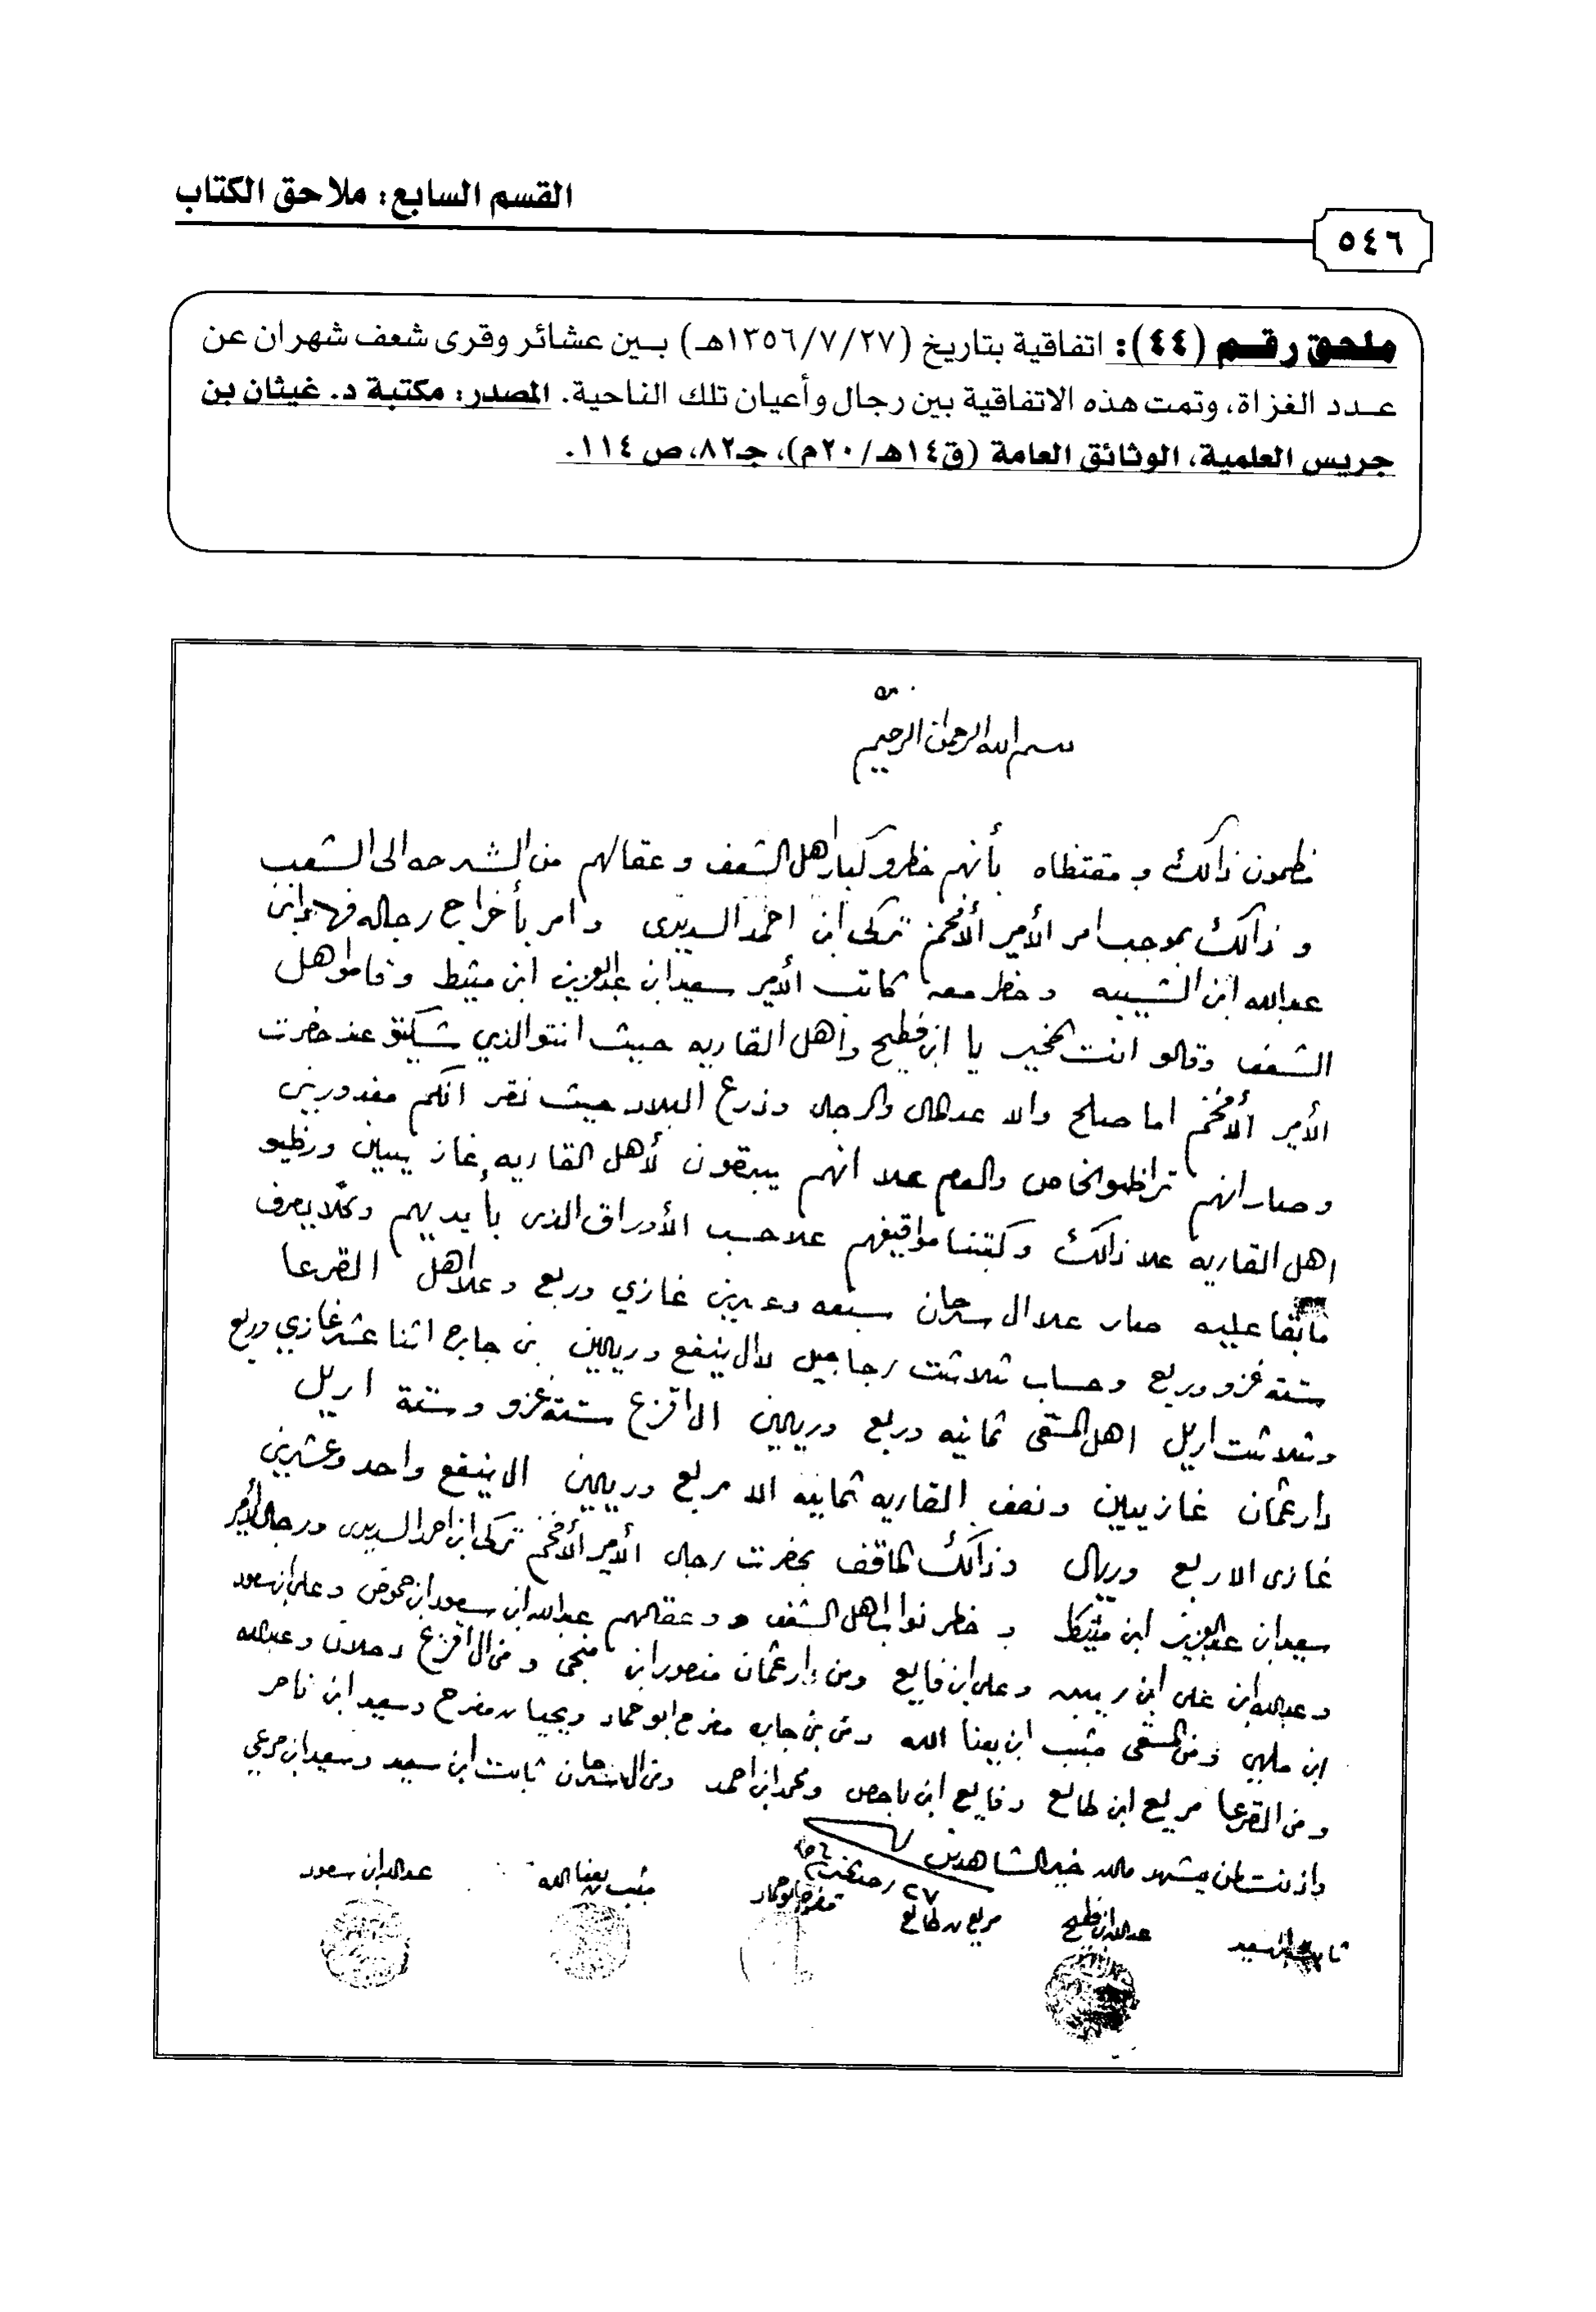 القسم السابع: ملاحق الكتاب
٥٤٦
ملحق رقم (٤٤): اتفاقية بتاريخ (١٣٥٦/٧/٢٧هـ) بين عشائر وقرى شعف شهران عن
عدد الغزاة، وتمت هذه الاتفاقية بين رجال وأعيان تلك الناحية. المصدر: مكتبة د. غيثان بن
جريس العلمية، الوثائق العامة (ق١٤هـ/٢٠م)، جـ٨٢، ص ١١٤.
بسم الله الرحمن الرحيم
مظمون ذالك و مقتظاه بأنهم حظرو كبار اهل الشعف وعقالهم من الشرحه الى الشعب
و ذالك بموجب امر الأمير الأفخم تركي ابن احمد السديري و امر بأخراج رجاله
عبدالله ابن الشبيبه و حظر معه كاتب الأمير سعيد ابن عبدالعزيز ابن مشيط وقاموا هل
الشعف وقالو انت يا ابن فطيح واهل القاريه حيث انتو الذي عند حضرت
الأمير الأفخم اما صلح والا عد والرجال وذرع البلاد حيث نقر انكم مغدورين
و صار انهم تراظوا الخاص والعام علا انهم يبقون لأهل القاريه غازيين ورظيو
اهل القاريه علا ذالك وكتبنا مواقيفهم علا حسب الأوراق الذي بأيديهم وكلا يعرف
ما بقا عليه صار علا ال سرحان سبعه وعشرين غازي وربع وعلا اهل القرعا
سته غزو وربع وحساب ثلاثت رجاجيل لال ينفع وريالين بني جابره اثنا عشر غازي وربع
وثلاثت اريل اهل المسقى ثمانيه وربع وريالين ال اقزع سته غزو وستة اريل
دار عثمان غازيين ونصف القاريه ثمانيه الا مربع وريالين ال ينفع واحد وعشرين
غازي الا ربع وريال وذالك بحضرت رجال الأمير الأفخم تركي ابن احمد السديري ورجال الأمير
سعيد ابن عبدالعزيز ابن مشيط و حظر نواب اهل الشعف و عقالهم عبدالله ابن سعود ابن حموض وعلي ابن سعود
وعبدالله ابن علي ابن وعلي ابن فايع ومن دار عثمان منصور ابن منجي ومن ال اقزع وعبدالله
ابن ملهي ومن المسقى مثبب ابن يعنا الله ومن بني جابره مفرح ابو حماد ويحيا بن مفرح وسعيد ابن ناصر
ومن القرعا مريع ابن طالع وفايع ابن ناحص ومحمد ابن احمد ومن ال سرحان ثابت ابن سعيد وسعيد ابن مرعي
واذنت لمن يشهد والله خير الشاهدين
٢٧ رجب ٥٦
عبدالله ابن سعود
مثبب بن يعنا الله
مفرح ابو حماد
مريع بن طالع
عبدالله ابن فطيح
ثابت ابن سعيد